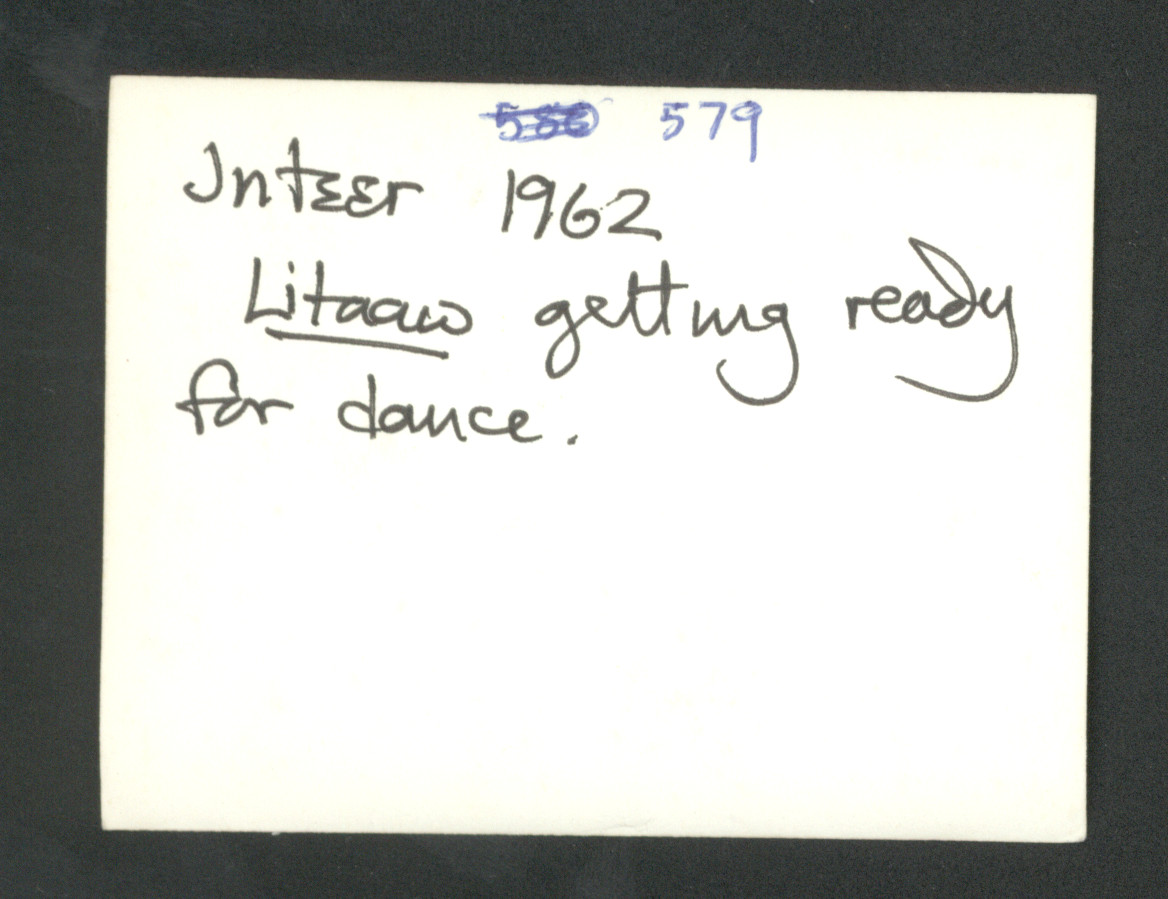 579
Jntɛɛr 1962
Litaaw getting ready
for dance.